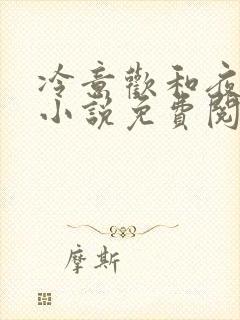 冷意歡和夜
小說免費閱
摩斯